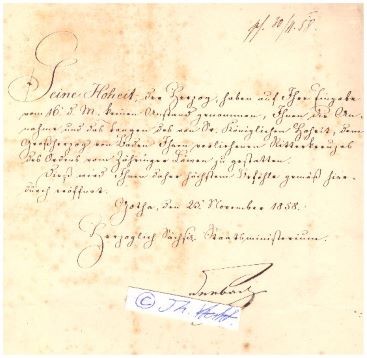 pf. 30/11.58.
Seine Hoheit, der Herzog, haben auf Ihre Eingabe
vom 16. d. M. keinen Anstand genommen, Ihnen die An-
nahme und das Tragen des von Sr. Königlichen Hoheit, dem
Großherzog von Baden Ihnen verliehenen Ritterkreuzes
des Ordens vom Zähringer Löwen zu gestatten.
Dieß wird Ihnen daher höchstem Befehle gemäß hier-
durch eröffnet.
Gotha, den 23. November 1858.
Herzoglich Sächs. Staatsministerium.
Seebach
© Th.